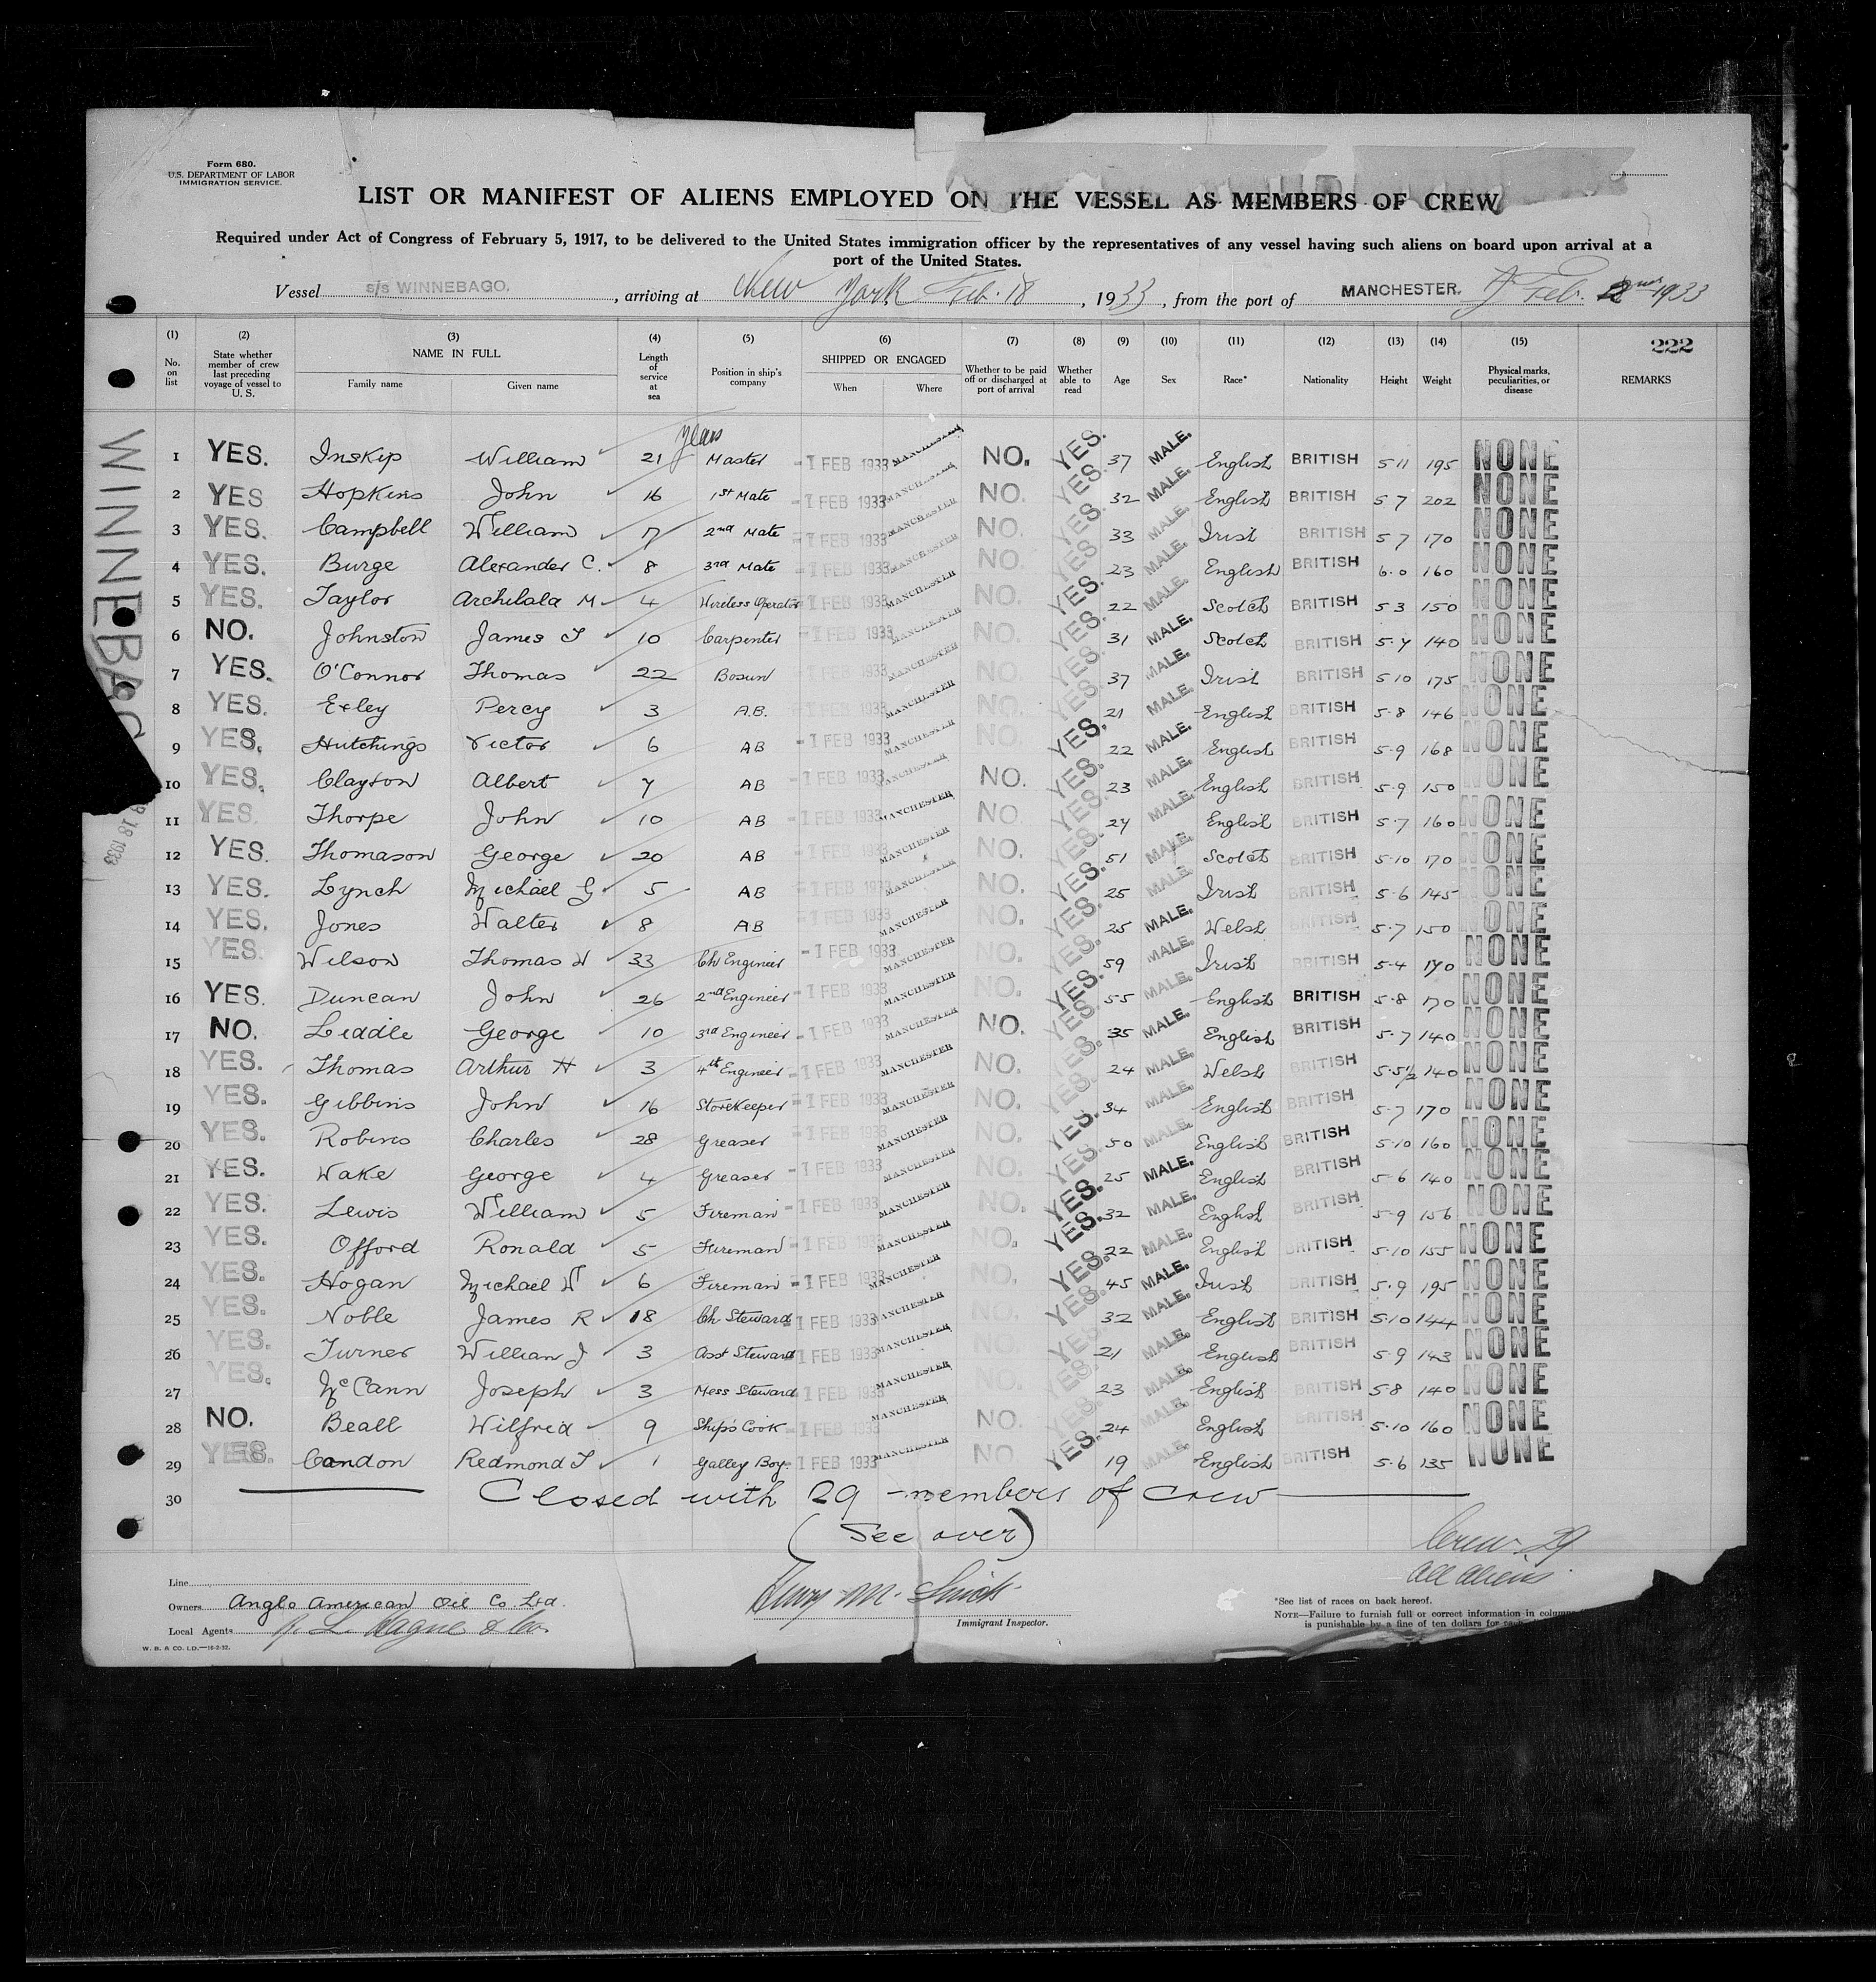 Form 680.
U.S. DEPARTMENT OF LABOR
IMMIGRATION SERVICE.
LIST OR MANIFEST OF ALIENS EMPLOYED ON THE VESSEL AS MEMBERS OF CREW
Required under Act of Congress of February 5, 1917, to be delivered to the United States immigration officer by the representatives of any vessel having such aliens on board upon arrival at a
port of the United States.
Vessel s/s WINNEBAGO. , arriving at New York Feb. 18 , 1933 , from the port of MANCHESTER. Feb. 1933
222
(1) No. on list (2) State whether member of crew last preceding voyage of vessel to U. S. (3) NAME IN FULL Family name Given name (4) Length of service at sea (5) Position in ship's company (6) SHIPPED OR ENGAGED When Where (7) Whether to be paid off or discharged at port of arrival (8) Whether able to read (9) Age (10) Sex (11) Race* (12) Nationality (13) Height (14) Weight (15) Physical marks, peculiarities, or disease REMARKS
WINNEBAGO
18 1933
years
1 YES. Inskip William 21 Master -1 FEB 1933 MANCHESTER NO. YES. 37 MALE. English BRITISH 5 11 195 NONE
2 YES Hopkins John 16 1st Mate -1 FEB 1933 MANCHESTER NO. YES. 32 MALE. English BRITISH 5 7 202 NONE
3 YES. Campbell William 7 2nd Mate -1 FEB 1933 MANCHESTER NO. YES. 33 MALE. Irish BRITISH 5 7 170 NONE
4 YES. Burge Alexander C. 8 3rd Mate -1 FEB 1933 MANCHESTER NO. YES 23 MALE. English BRITISH 6.0 160 NONE
5 YES. Taylor Archibald M 4 Wireless Operator -1 FEB 1933 MANCHESTER NO. YES. 22 MALE. Scotch BRITISH 5 3 150 NONE
6 NO. Johnston James T 10 Carpenter -1 FEB 1933 MANCHESTER NO. YES. 31 MALE. Scotch BRITISH 5.7 140 NONE
7 YES. O'Connor Thomas 22 Bosun 1933 MANCHESTER NO. YES. 37 MALE. Irish BRITISH 5 10 175 NONE
8 YES. Exley Percy 3 A.B. -1 FEB 1933 MANCHESTER NO. YES. 21 MALE. English BRITISH 5.8 146 NONE
9 YES. Hutchings Victor 6 AB -1 FEB 1933 MANCHESTER NO. YES. 22 MALE. English BRITISH 5.9 168 NONE
10 YES. Clayton Albert 7 AB -1 FEB 1933 MANCHESTER NO. YES. 23 MALE. English BRITISH 5.9 150 NONE
11 YES. Thorpe John 10 AB -1 FEB 1933 MANCHESTER NO YES. 27 MALE. English BRITISH 5.7 160 NONE
12 YES. Thomason George 20 AB -1 FEB 1933 MANCHESTER NO. YES. 51 MALE. Scotch BRITISH 5.10 170 NONE
13 YES. Lynch Michael G 5 AB -1 FEB 1933 MANCHESTER NO. YES. 25 MALE. Irish BRITISH 5.6 145 NONE
14 YES. Jones Walter 8 AB -1 FEB 1933 MANCHESTER NO. YES. 25 MALE. Welsh BRITISH 5.7 150 NONE
15 YES. Wilson Thomas W 33 Ch Engineer -1 FEB 1933 MANCHESTER NO. YES. 59 MALE. Irish BRITISH 5.4 170 NONE
16 YES. Duncan John 26 2nd Engineer -1 FEB 1933 MANCHESTER NO. YES. 55 MALE. English BRITISH 5.8 170 NONE
17 NO. Liddle George 10 3rd Engineer -1 FEB 1933 MANCHESTER NO. YES. 35 MALE. English BRITISH 5.7 140 NONE
18 YES. Thomas Arthur H 3 4th Engineer -1 FEB 1933 MANCHESTER NO. YES. 24 MALE. Welsh BRITISH 5.5½ 140 NONE
19 YES. Gibbins John 16 Storekeeper -1 FEB 1933 MANCHESTER NO. YES. 34 MALE. English BRITISH 5.7 170 NONE
20 YES. Robins Charles 28 Greaser -1 FEB 1933 MANCHESTER NO. YES. 50 MALE. English BRITISH 5.10 160 NONE
21 YES. Wake George 4 Greaser -1 FEB 1933 MANCHESTER NO. YES. 25 MALE. English BRITISH 5 6 140 NONE
22 YES. Lewis William 5 Fireman -1 FEB 1933 MANCHESTER NO. YES. 32 MALE. English BRITISH 5.9 156 NONE
23 YES. Offord Ronald 5 Fireman -1 FEB 1933 MANCHESTER NO. YES. 22 MALE. English BRITISH 5.10 155 NONE
24 YES. Hogan Michael W 6 Fireman -1 FEB 1933 MANCHESTER NO. YES. 45 MALE. Irish BRITISH 5.9 195 NONE
25 YES. Noble James R 18 Ch Steward -1 FEB 1933 MANCHESTER NO. YES. 32 MALE. English BRITISH 5.10 144 NONE
26 YES. Turner William J 3 Asst Steward -1 FEB 1933 MANCHESTER NO. YES. 21 MALE. English BRITISH 5.9 143 NONE
27 YES. McCann Joseph 3 Mess Steward -1 FEB 1933 MANCHESTER NO. YES. 23 MALE. English BRITISH 5 8 140 NONE
28 NO. Beall Wilfred 9 Ship's Cook -1 FEB 1933 MANCHESTER NO. YES. 24 MALE. English BRITISH 5.10 160 NONE
29 YES. Condon Redmond T 1 Galley Boy -1 FEB 1933 MANCHESTER NO. YES. 19 MALE. English BRITISH 5.6 135 NONE
30 Closed with 29 members of crew
(See over)
Crew 29
all aliens.
Line
Owners Anglo American Oil Co. Ltd.
Local Agents
Henry M.
Immigrant Inspector.
*See list of races on back hereof.
NOTE—Failure to furnish full or correct information in
is punishable by a fine of ten dollars for
W. B. & CO. LD.—16-2-32.